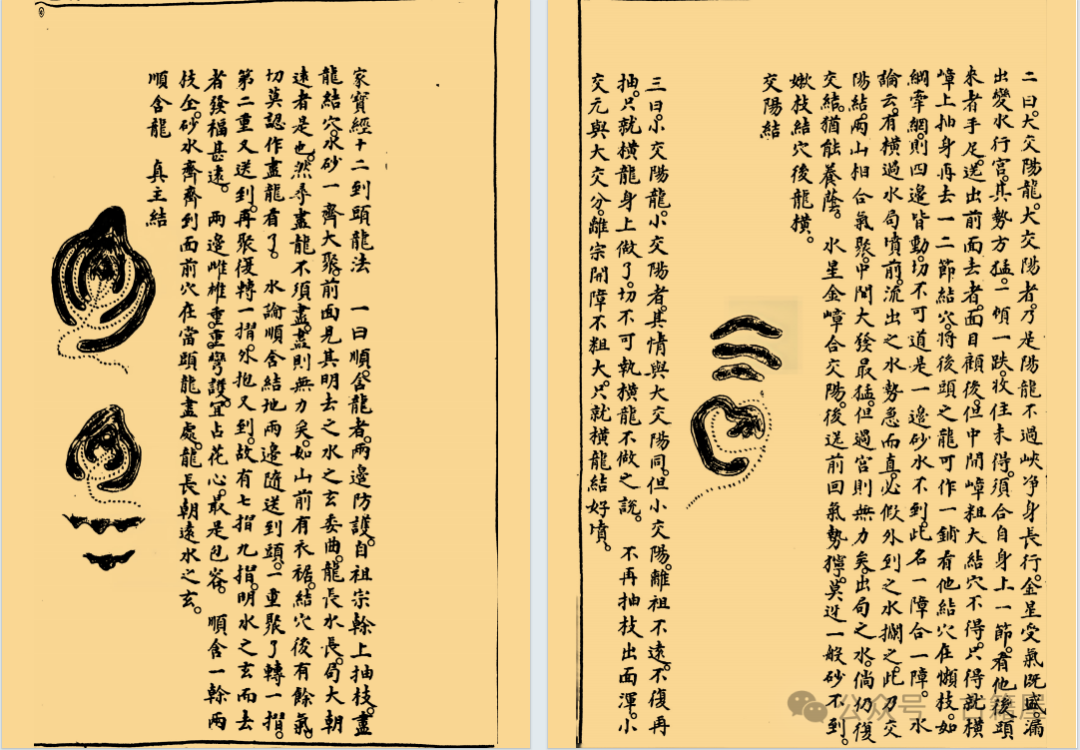 家寶經十二到頭龍法　一曰順舍龍者。兩邊防護。自祖宗榦上抽枝。盡
龍結穴。水砂一齊大聚。前面見其明去之水之玄委曲。龍長水長。局大朝
遠者是也。然尋盡龍不須盡。盡則無力矣。如山前有衣裾。結穴後有餘氣
切莫認作盡龍看了。　水論順舍結地兩邊隨送到頭。一重聚了轉一摺。
第二重又送到。再聚復轉一摺。外抱又到。故有七摺九摺。明水之玄而去
者發福甚遠。　兩邊重重彎護。宜占花心。最是包容。　順舍一榦兩
枝企。砂水齊齊到面前。穴在當頭龍盡處。龍長朝遠水之玄。
順舍龍　真主結
二曰大交陽龍。大交陽者。乃是陽龍不過峽。净身長行。金星受氣既盛。漏
出變水行宮。其勢方猛。一頓一跌。收住未得。須合自身上一節。看他後頭
來者手足。送出前面去者。面目顧後。但中間嶂粗大結穴不得。只得就橫
嶂上抽身再去一二節結穴。將後頭之龍可作一鋪看他結穴在懶枝。如
網牽網。則四邊皆動。切不可道是一邊砂水不到。此名一障合一障。　水
論云。有橫過水局墳前。流出之水勢急而直。必假外到之水攔之。此乃交
陽結。兩山相合氣聚。中間大發最猛。但過宮則無力矣。出局之水。倘仍復
交結。猶能養蔭。　水星金嶂合交陽。後送前回氣勢獰。莫訝一般砂不到。
嫩枝結穴後龍橫。
交陽結
三曰。小交陽龍。小交陽者。其情與大交陽同。但小交陽。離祖不遠。不復再
抽。只就橫龍身上做了。切不可執橫龍不做之說。　不再抽枝出面渾。小
交元與大交分。離宗開障不粗大。只就橫龍結好墳。
公众号 古籍屋